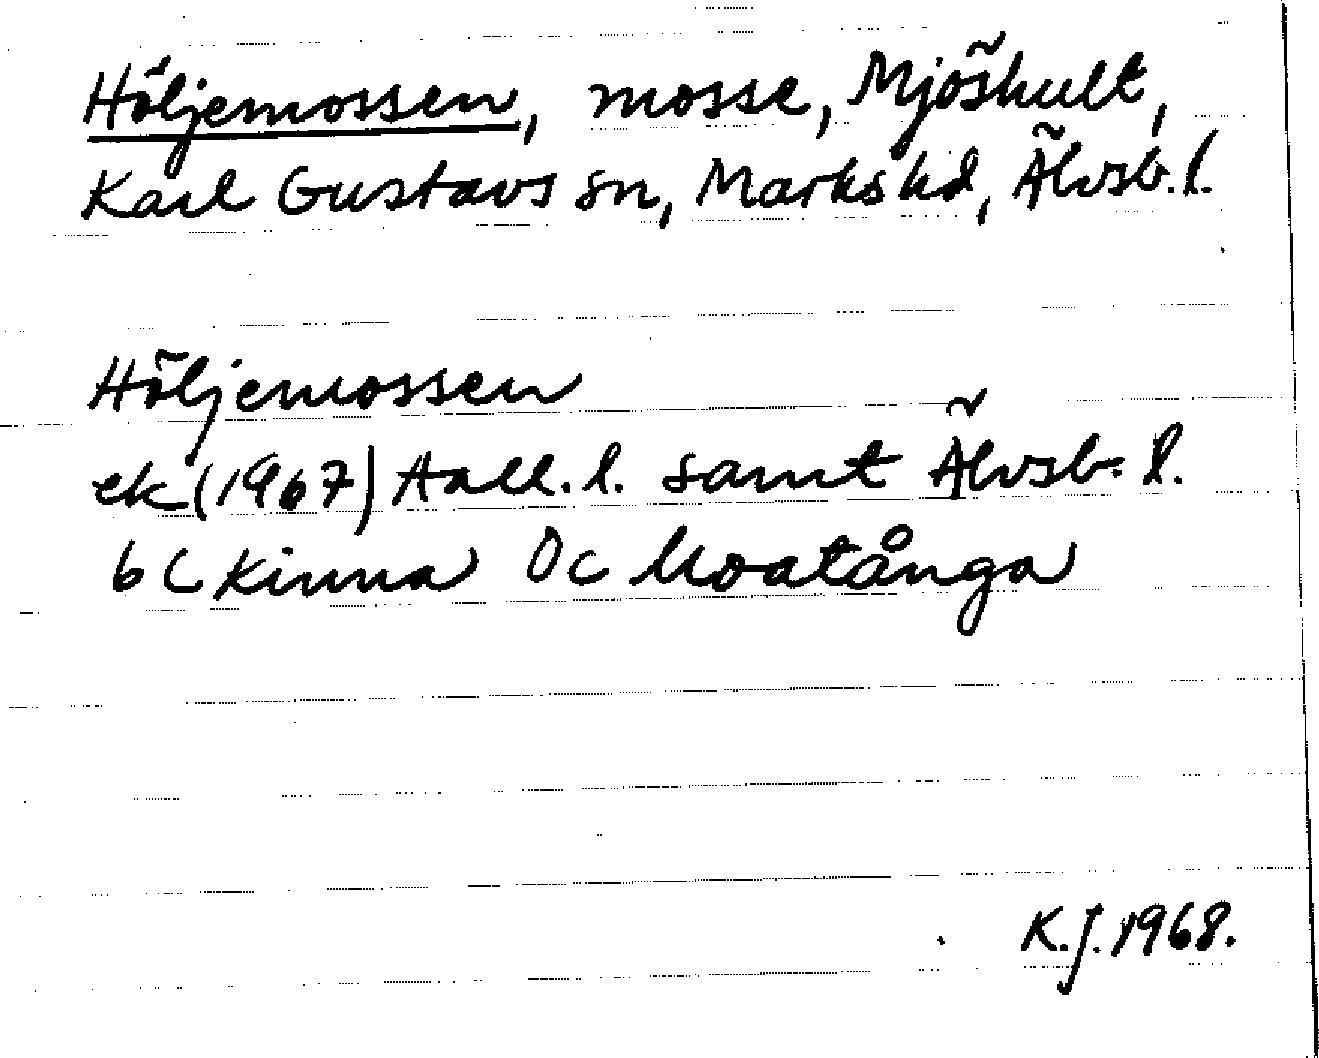 Höljemossen, mosse, Mjöshult,
Karl Gustavs sn, Marks hd, Älvsb. l.
Höljemossen
ek (1967) Hall. l. samt Älvsb. l.
6 C Kinna 0c Moatånga
K.J. 1968.